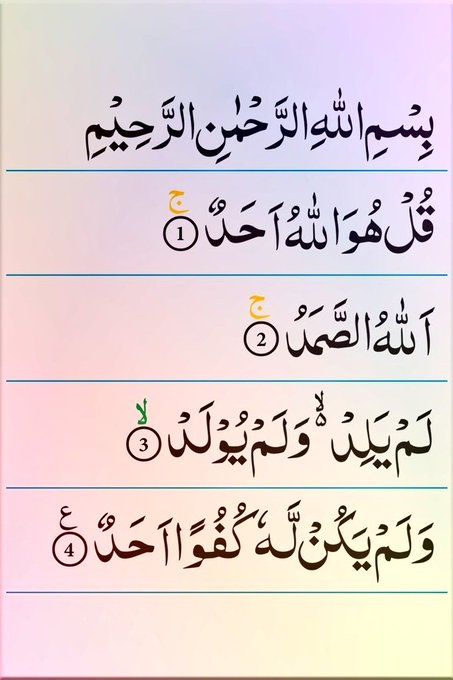 بِسْمِ اللهِ الرَّحْمٰنِ الرَّحِیْمِ
قُلْ هُوَ اللهُ اَحَدٌ ۚ ١
اَللهُ الصَّمَدُ ۚ ٢
لَمْ یَلِدْ ۙ۬ وَلَمْ یُوْلَدْ ۙ ٣
وَلَمْ یَكُنْ لَّهٗ كُفُوًا اَحَدٌ ع ٤